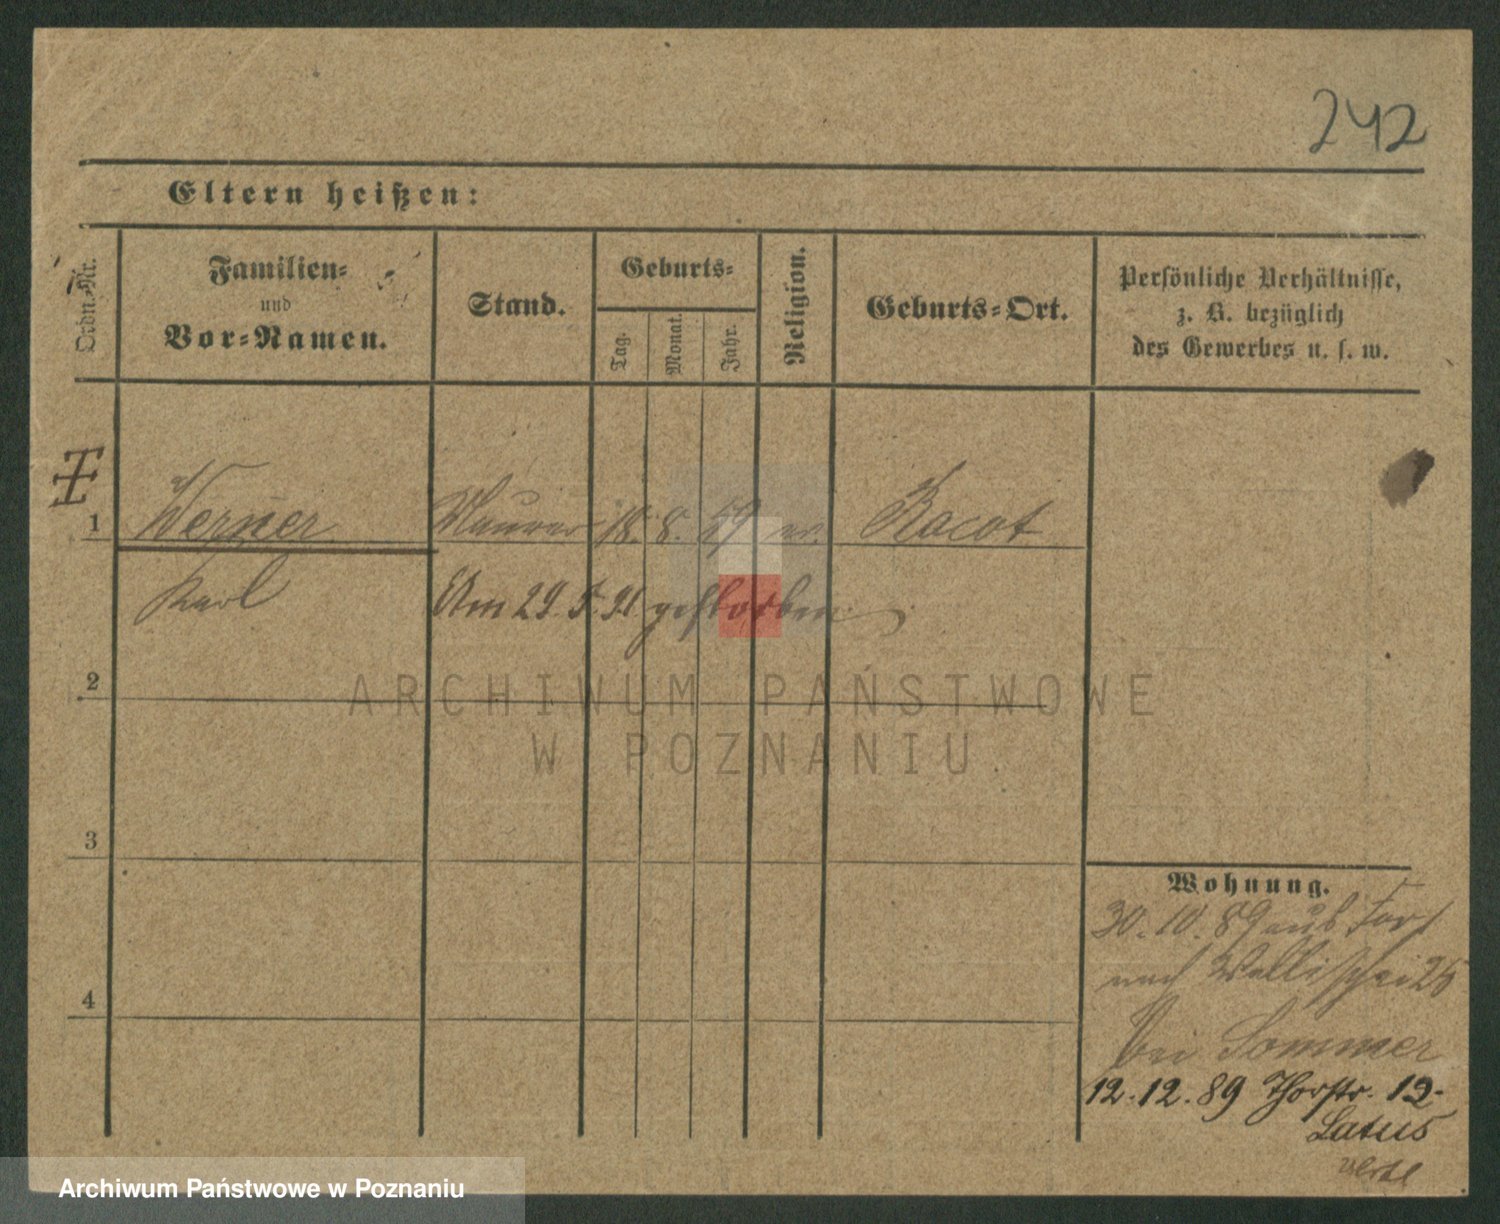 242
Eltern heißen:
Ordn.-Nr.
Familien-
und
Vor-Namen.
Stand.
Geburts-
Tag.
Monat.
Jahr.
Religion.
Geburts-Ort.
Persönliche Verhältnisse,
z. B. bezüglich
des Gewerbes u. s. w.
1
Werner Maurer 18. 8. 59 ev. Racot
Karl Am 29. 5. 91 gestorben
2
ARCHIWUM PAŃSTWOWE
W POZNANIU
3
Wohnung.
30. 10. 89 aus Fort
nach Wallischei 25
4
bei Sommer
12. 12. 89 Thorstr. 12.
Latus
Archiwum Państwowe w Poznaniu